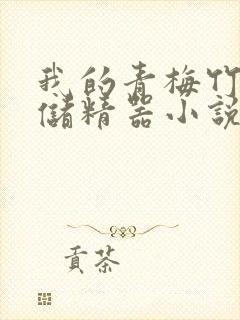 我的青梅竹
儲精器小說
貢茶